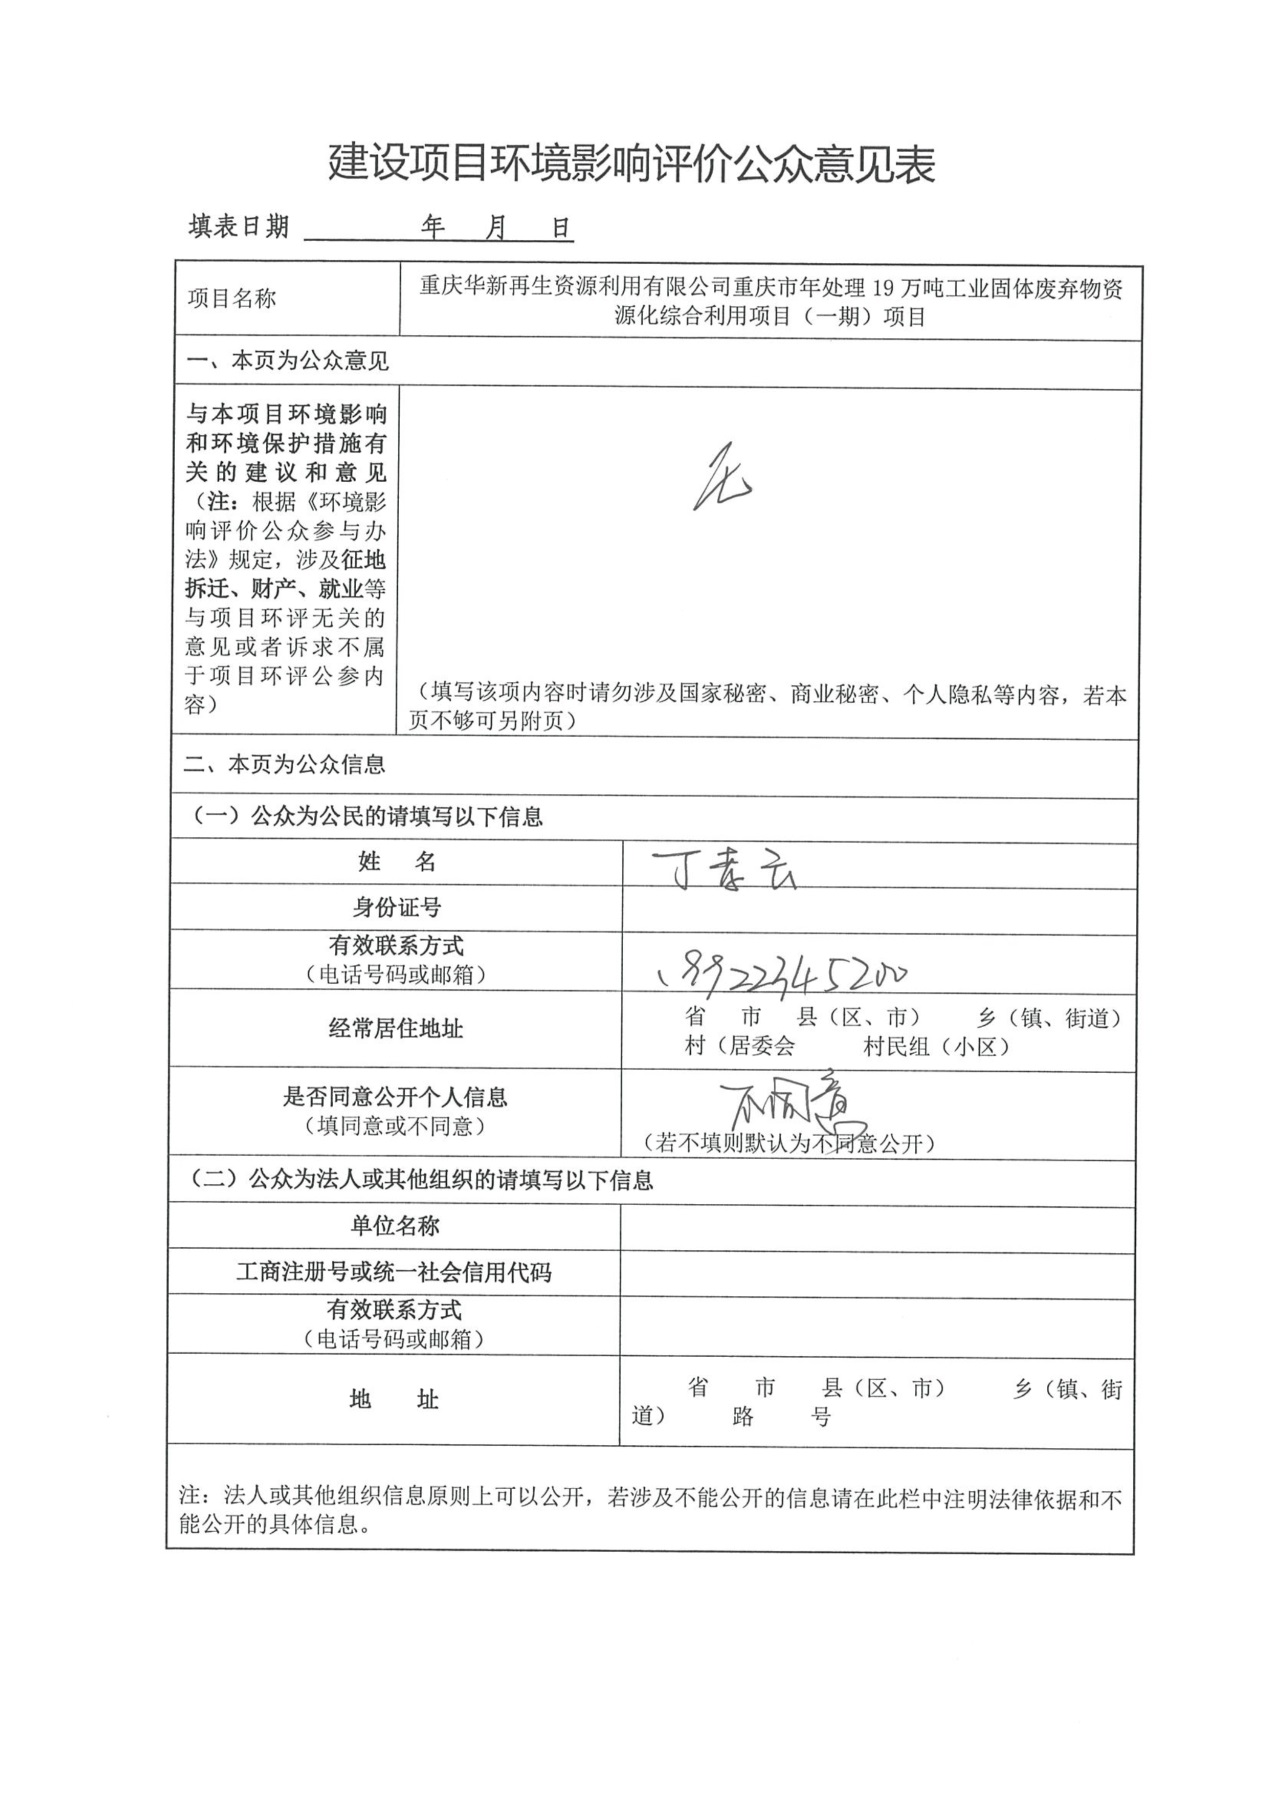 建设项目环境影响评价公众意见表
填表日期 年 月 日
项目名称
重庆华新再生资源利用有限公司重庆市年处理 19 万吨工业固体废弃物资
源化综合利用项目（一期）项目
一、本页为公众意见
与本项目环境影响
和环境保护措施有
关的建议和意见
（注：根据《环境影
响评价公众参与办
法》规定，涉及征地
拆迁、财产、就业等
与项目环评无关的
意见或者诉求不属
于项目环评公参内
容）
无
（填写该项内容时请勿涉及国家秘密、商业秘密、个人隐私等内容，若本
页不够可另附页）
二、本页为公众信息
（一）公众为公民的请填写以下信息
姓 名
丁孝云
身份证号
有效联系方式
（电话号码或邮箱）
经常居住地址
省 市 县（区、市） 乡（镇、街道）
村（居委会 村民组（小区）
是否同意公开个人信息
（填同意或不同意）
不同意
（若不填则默认为不同意公开）
（二）公众为法人或其他组织的请填写以下信息
单位名称
工商注册号或统一社会信用代码
有效联系方式
（电话号码或邮箱）
地 址
省 市 县（区、市） 乡（镇、街
道） 路 号
注：法人或其他组织信息原则上可以公开，若涉及不能公开的信息请在此栏中注明法律依据和不
能公开的具体信息。